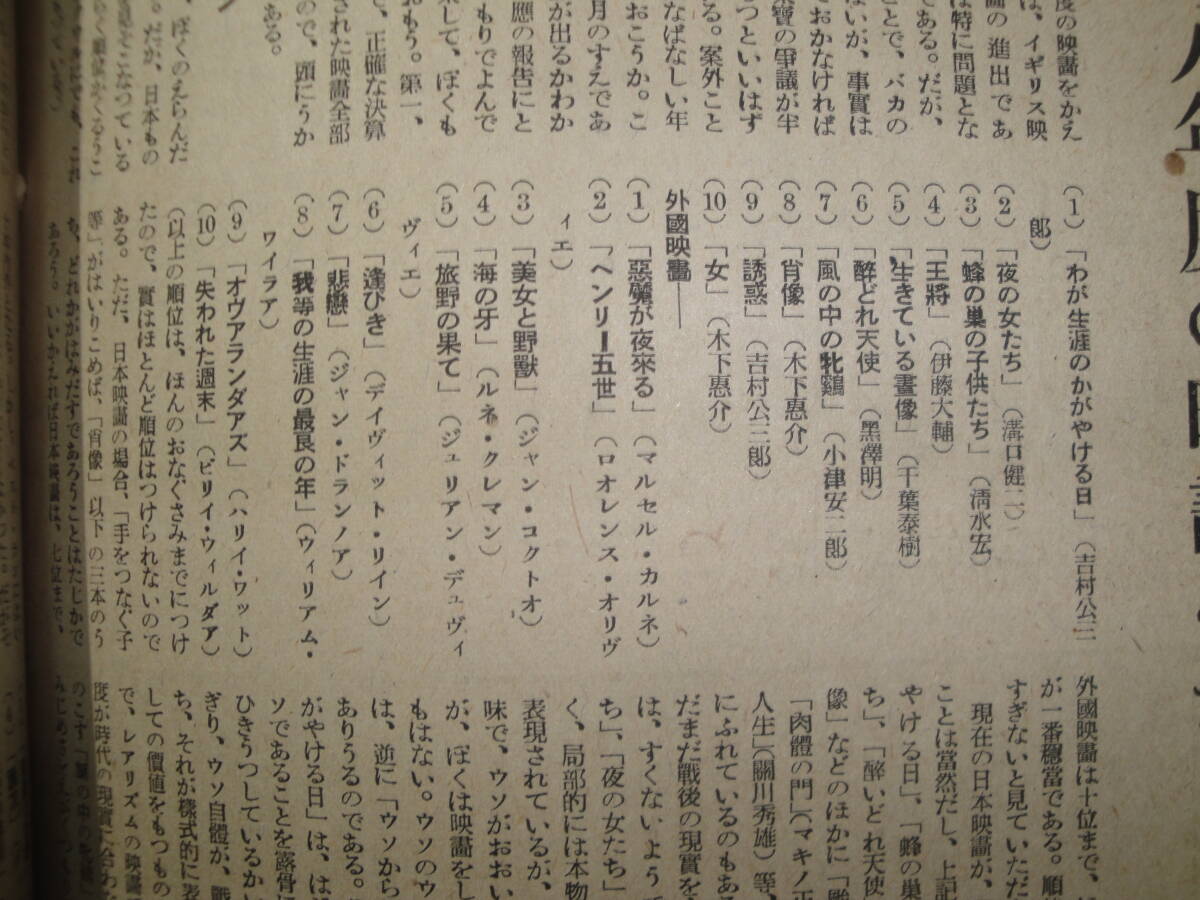 度の映畫をかえ
は、イギリス映
畫の進出であ
は特に問題とな
である。だが、
ことで、バカの
ないが、事實は
ておかなければ
東寶の爭議が半
もつといいはず
る。案外こと
なばなしい年
おこうか。こ
月のすえであ
が出るかわか
應の報告にと
もりでよんで
果して、ぼくも
おもう。第一、
で、正確な決算
された映畫全部
ので、頭にうか
ある。
ぼくのえらんだ
だが、日本もの
(1)「わが生涯のかがやける日」(吉村公三
郎)
(2)「夜の女たち」(溝口健二)
(3)「蜂の巣の子供たち」(清水宏)
(4)「王將」(伊藤大輔)
(5)「生きている畫像」(千葉泰樹)
(6)「醉どれ天使」(黑澤明)
(7)「風の中の牝鷄」(小津安二郎)
(8)「肖像」(木下惠介)
(9)「誘惑」(吉村公三郎)
(10)「女」(木下惠介)
外國映畫――
(1)「惡魔が夜來る」(マルセル・カルネ)
(2)「ヘンリー五世」(ロオレンス・オリヴ
ィエ)
(3)「美女と野獸」(ジャン・コクトオ)
(4)「海の牙」(ルネ・クレマン)
(5)「旅野の果て」(ジュリアン・デュヴィ
ヴィエ)
(6)「逢びき」(デイヴィット・リイン)
(7)「悲戀」(ジャン・ドランノア)
(8)「我等の生涯の最良の年」(ウィリアム・
ワイラア)
(9)「オヴアランダアズ」(ハリイ・ワット)
(10)「失われた週末」(ビリイ・ウィルダア)
(以上の順位は、ほんのおなぐさみまでにつけ
たので、實はほとんど順位はつけられないので
ある。ただ、日本映畫の場合、「手をつなぐ子
等」がはいりこめば、「肖像」以下の三本のう
ち、どれかがはみだすであろうことはたしかで
あろう。いいかえれば日本映畫は、七位まで、
外國映畫は十位まで、
が一番穩當である。順
すぎないと見ていただ
現在の日本映畫が、
ことは當然だし、上記
やける日」、「蜂の巣
ち」、「醉いどれ天使
像」などのほかに「
「肉體の門」(マキノ正
人生」(關川秀雄)等、
にふれているのもあ
だまだ戰後の現實を
は、すくないよう
ち」、「夜の女たち」
く、局部的には本物
表現されているが、
味で、ウソがおおい
が、ぼくは映畫をし
もはない。ウソのウ
は、逆に「ウソから
ありうるのである。
がやける日」は、は
ソであることを露骨
ひきうつしているか
ぎり、ウソ自體が、戰
ち、それが樣式的に表
しての價値をもつもの
で、レアリズムの映畫
度が時代の現實に合わ